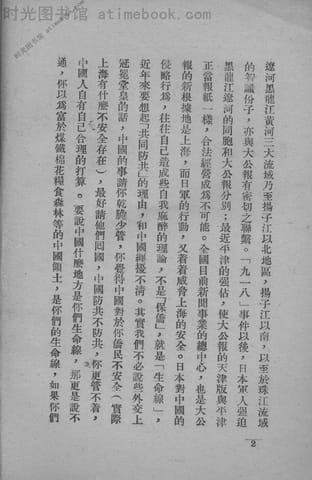 时光图书馆 atimebook.com
遼河黑龍江黃河三大流域乃至揚子江以北地區，揚子江以南，以至於珠江流域
的智識份子，亦與大公報有密切之聯繫。「九一八」事件以後，日本軍人强迫
黑龍江遼河的同胞和大公報分別；最近平津的强佔，使大公報的天津版與平津
正當報紙一樣，合法經營成為不可能。全國目前新聞事業的總中心，也是大公
報的新根據地是上海，而日軍的行動，又着着威脅上海的安全。日本對中國的
侵略行為，往往自己造成些自我麻醉的理論，不是「保僑」，就是「生命線」，
近年來要想起「共同防共」的理由，和中國糾擾不清。其實我們不必說些外交上
冠冕堂皇的話，中國的事請你乾脆少管，你覺得中國對於你僑民不安全（實際
上海有什麽不安全存在），最好請他們囘國，中國防共不防共，你更管不着，
中國人自有自己合理的打算。要說中國什麽地方是你們生命線，那更是說不
通，你以為富於煤鐵棉花糧食森林等的中國領土，是你們的生命線，如果你們
2